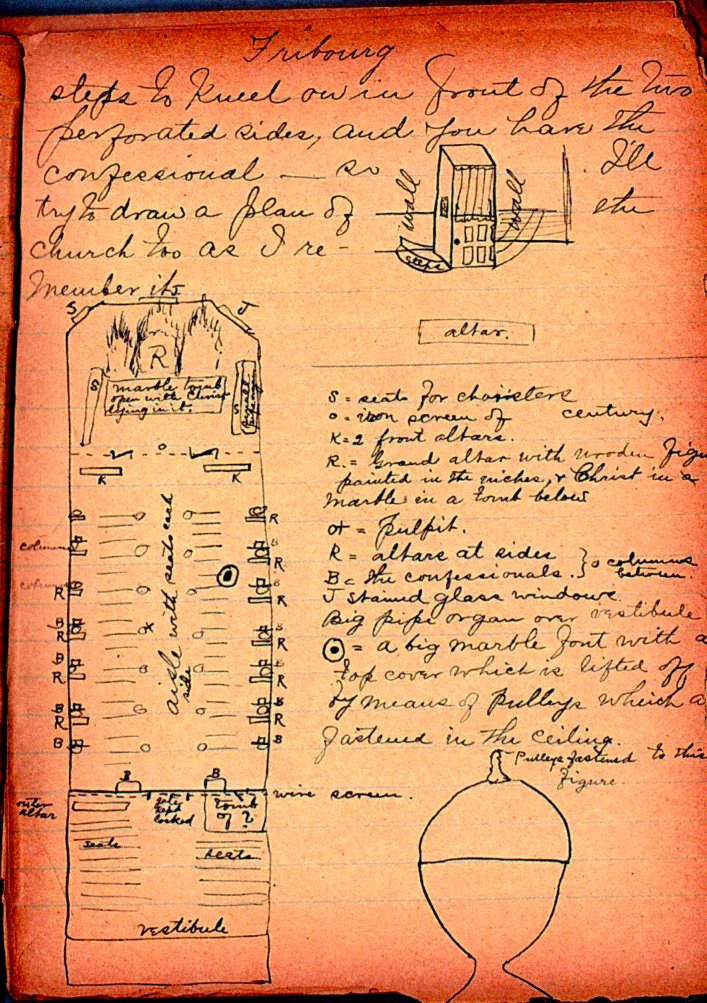 Fribourg
steps to kneel on in front of the two
perforated sides, and you have the
confessional — so . I'll
try to draw a plan of the
church too as I re-
member it.
wall
wall
steps
altar.
S
J
R
S
marble tomb
open with Christ
lying in it.
S
K
K
columns
columns
aisle with seats each
side
R
R
R
B
R
B
R
B
R
B
R
B
B
R
B
R
B
R
B
R
B
R
B
R
B
B
B
outer
altar
gate
kept
locked
Tomb
of ?
wire screen.
seats
seats
vestibule
S = seats for choristers
o = iron screen of century.
K = 2 front altars.
R. = Grand altar with wooden figu
painted in the niches, & Christ in a
marble in a tomb below
= pulpit.
R = altars at sides
B = the confessionals. } o columns
between.
J stained glass windows.
Big pipe organ over vestibule
= a big marble font with a
top cover which is lifted off
by means of pulleys which a
fastened in the ceiling.
Pulleys fastened to this
figure.